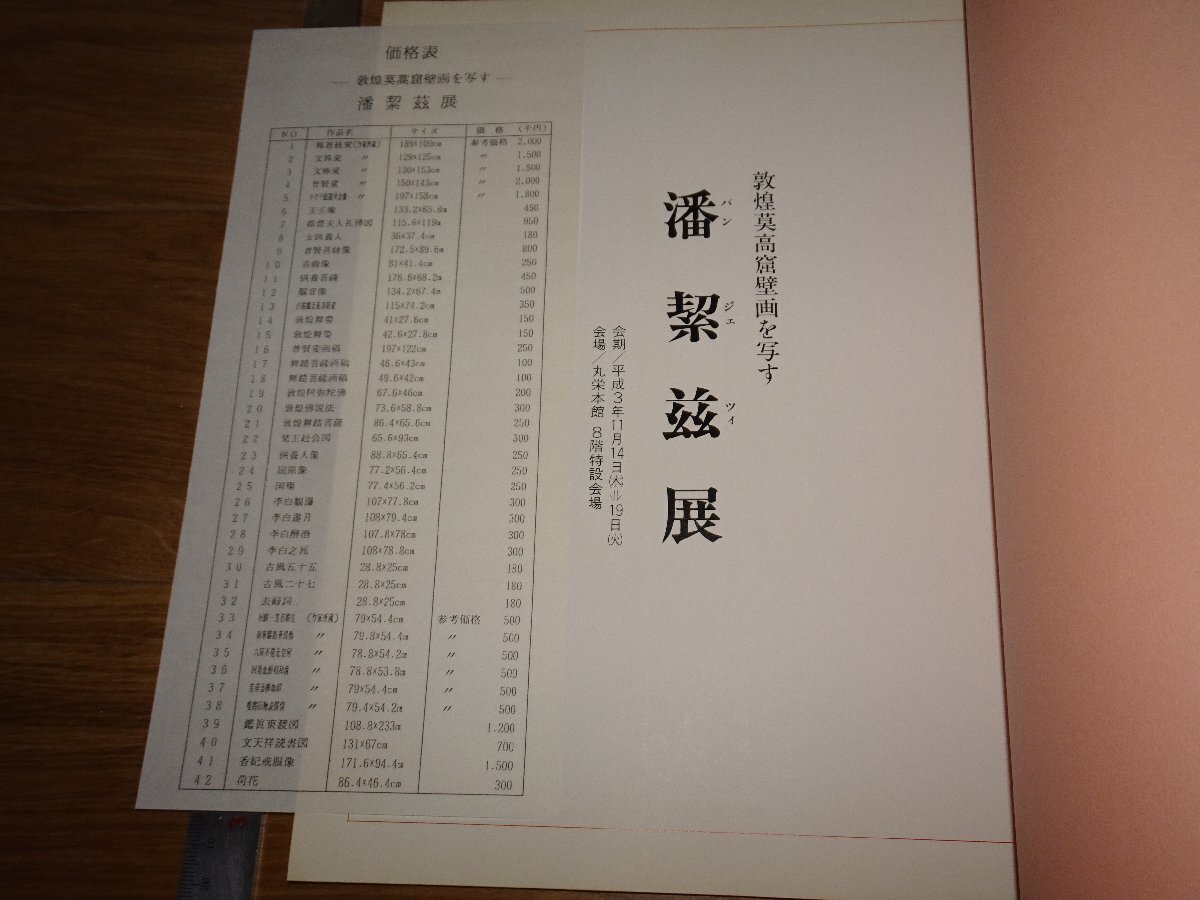 価格表
― 敦煌莫高窟壁画を写す ―
潘絜茲展
NO 作品名 サイズ 価格 (千円)
1 報恩経変(作家所蔵) 189×109cm 参考価格 2.000
2 文殊変 〃 129×125cm 〃 1.500
3 文殊変 〃 130×153cm 〃 1.500
4 普賢変 〃 150×143cm 〃 2.000
5 〃 197×153cm 〃 1.800
6 天王像 133.2×65.8cm 450
7 都督夫人礼佛図 115.6×119cm 950
8 女供養人 36×37.4cm 180
9 普賢菩薩像 172.5×89.6cm 800
10 菩薩像 81×41.4cm 250
11 供養菩薩 176.6×68.2cm 450
12 観音像 134.2×67.4cm 500
13 115×74.2cm 350
14 敦煌舞姿 41×27.6cm 150
15 敦煌舞姿 42.6×27.8cm 150
16 普賢変画稿 197×122cm 250
17 舞踏菩薩画稿 46.6×43cm 100
18 舞踏菩薩画稿 49.6×42cm 100
19 敦煌阿弥陀佛 67.6×46cm 200
20 敦煌佛説法 73.6×58.8cm 300
21 敦煌舞踏菩薩 86.4×65.6cm 250
22 梵王赴会図 65.6×93cm 300
23 供養人像 88.8×65.4cm 250
24 屈原像 77.2×56.4cm 250
25 国殤 77.4×56.2cm 250
26 李白観瀑 107×77.8cm 300
27 李白邀月 108×79.4cm 300
28 李白酔酒 107.8×78cm 300
29 李白之死 108×78.8cm 300
30 古風五十五 28.8×25cm 180
31 古風二十七 28.8×25cm 180
32 去婦詞 28.8×25cm 180
33 (作家所蔵) 79×54.4cm 参考価格 500
34 〃 79.8×54.4cm 〃 500
35 〃 78.8×54.2cm 〃 500
36 〃 78.8×53.8cm 〃 500
37 〃 79×54.4cm 〃 500
38 〃 79.4×54.2cm 〃 500
39 鑑眞東渡図 108.8×233cm 1.200
40 文天祥読書図 131×67cm 700
41 香妃戎服像 171.6×94.4cm 1.500
42 荷花 86.4×46.4cm 300
敦煌莫高窟壁画を写す
潘絜茲展
パン ジェ ツイ
会期/平成3年11月14日(木)→19日(火)
会場/丸栄本館 8階特設会場